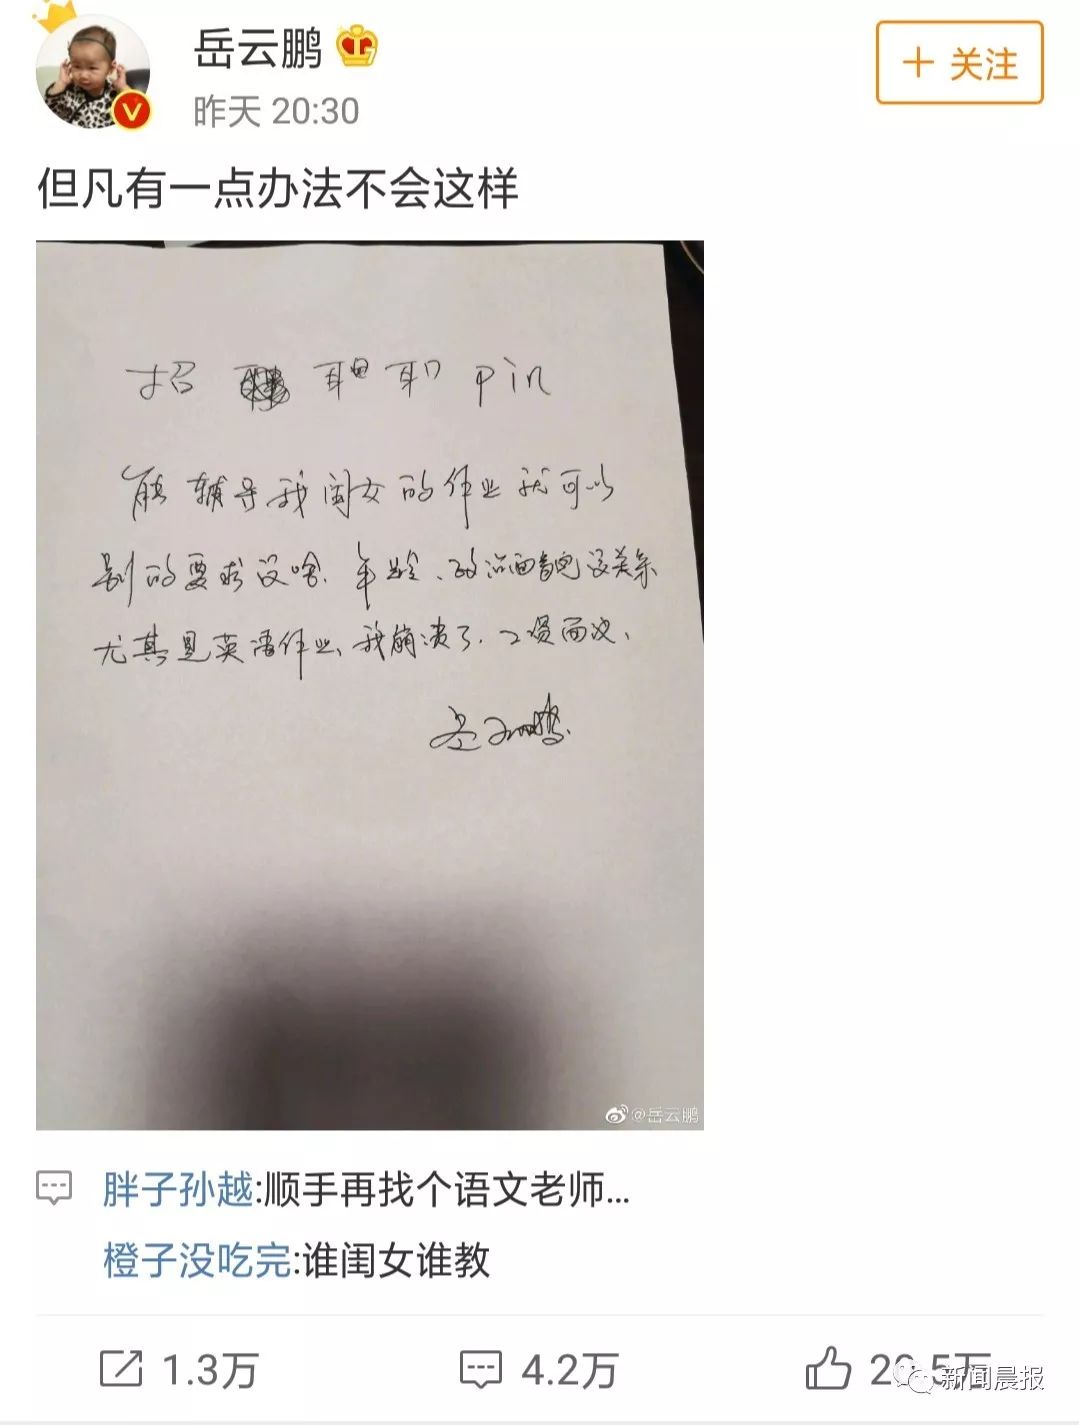 岳云鹏
昨天 20:30
+ 关注
但凡有一点办法不会这样
招 耶 职 pin
能辅导我闺女的作业就可以
别的要求没啥.年龄、政治面貌没关系
尤其是英语作业、我崩溃了.工资面议、
岳云鹏
@岳云鹏
胖子孙越:顺手再找个语文老师...
橙子没吃完:谁闺女谁教
1.3万
4.2万
新闻晨报